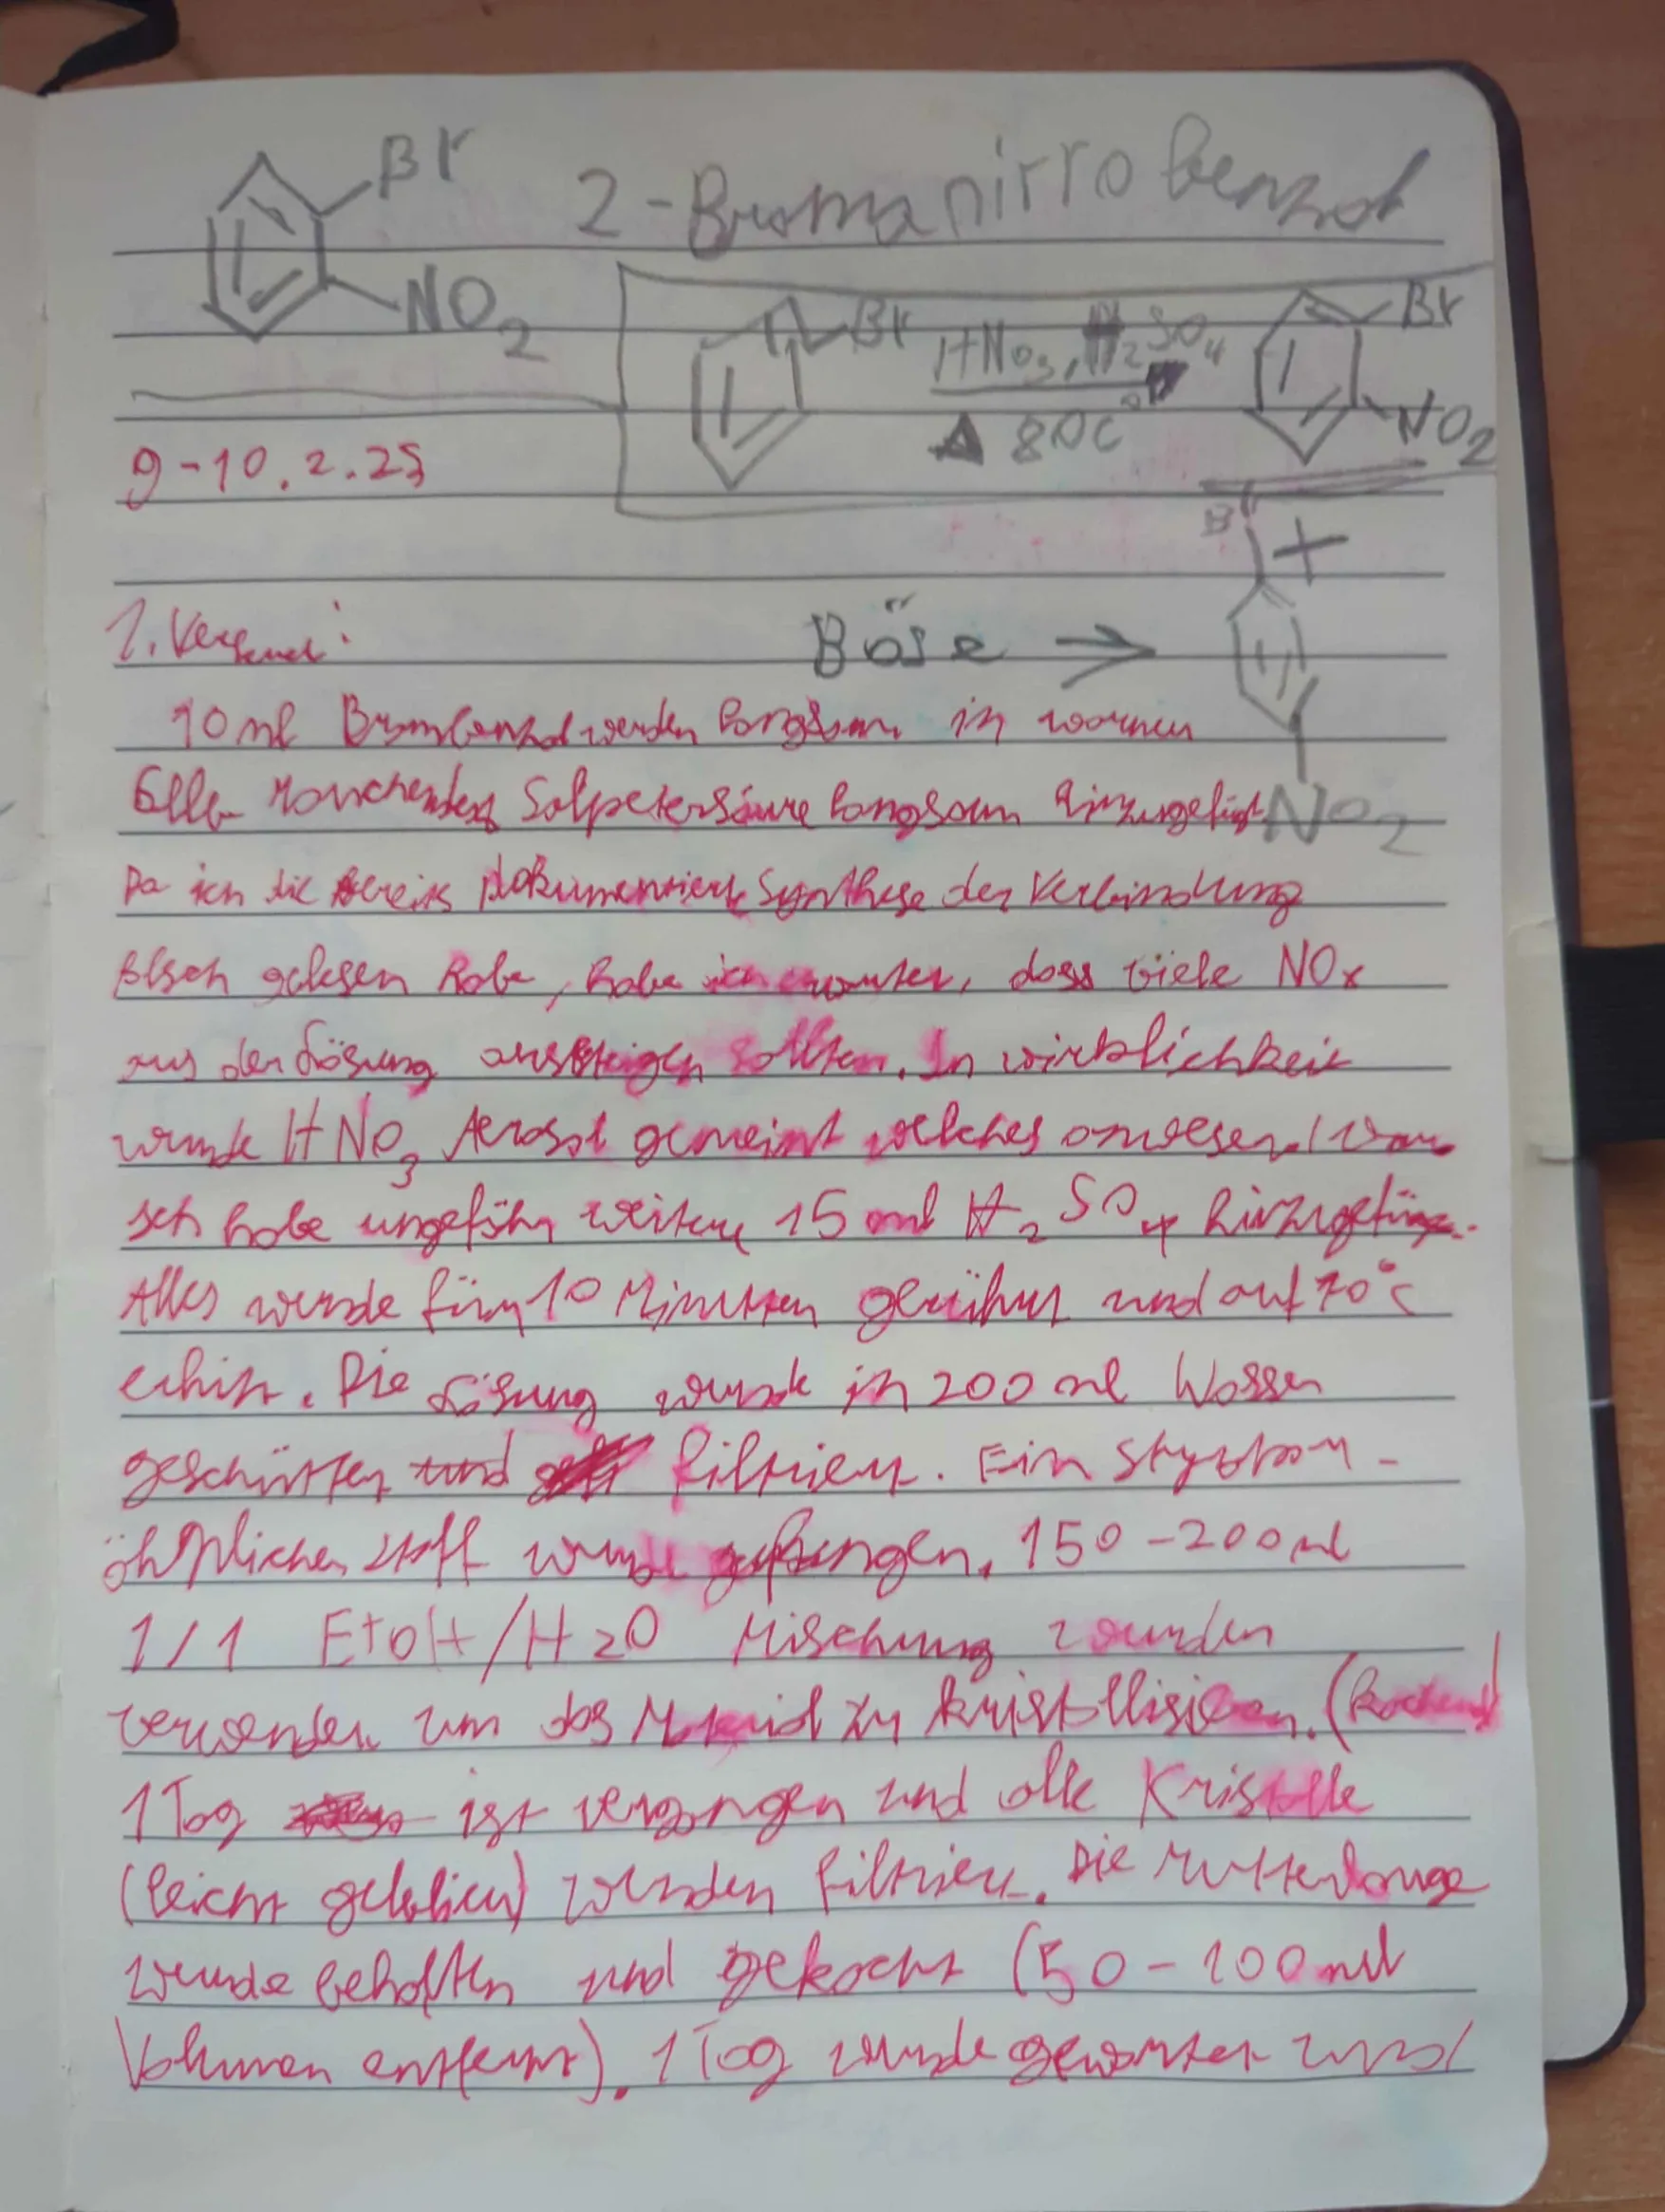 Br
2-Bromonitrobenzol
NO2
Br HNO3, H2SO4 Br
Δ 80C° NO2
9-10.2.25
Br +
1. Versuch:
Böse →
10 ml Brombenzol werden langsam in warmen
rauchender Salpetersäure langsam hinzugefügt NO2
Da ich die bereits dokumentierte Synthese der Verbindung
falsch gelesen habe, habe ich erwartet, dass viele NOx
aus der Lösung aussteigen sollten. In wirklichkeit
wurde HNO3 Aerosol gemeint welches anwesend war
Ich habe ungefähr weitere 15 ml H2SO4 hinzugefügt.
Alles wurde für 10 Minuten gerührt und auf 70°C
erhitzt. Die Lösung wurde in 200 ml Wasser
geschütten und filtriert. Ein
ähnlicher Stoff wurde gefangen. 150-200ml
1/1 EtOH/H2O Mischung wurden
verwendet um das Material zu kristallisieren. (kochend
1 Tag ist vergangen und alle Kristalle
(leicht gelblich) werden filtriert. Die Mutterlauge
wurde behalten und gekocht (50-100ml
Volumen entfernt). 1 Tag wurde gewartet und